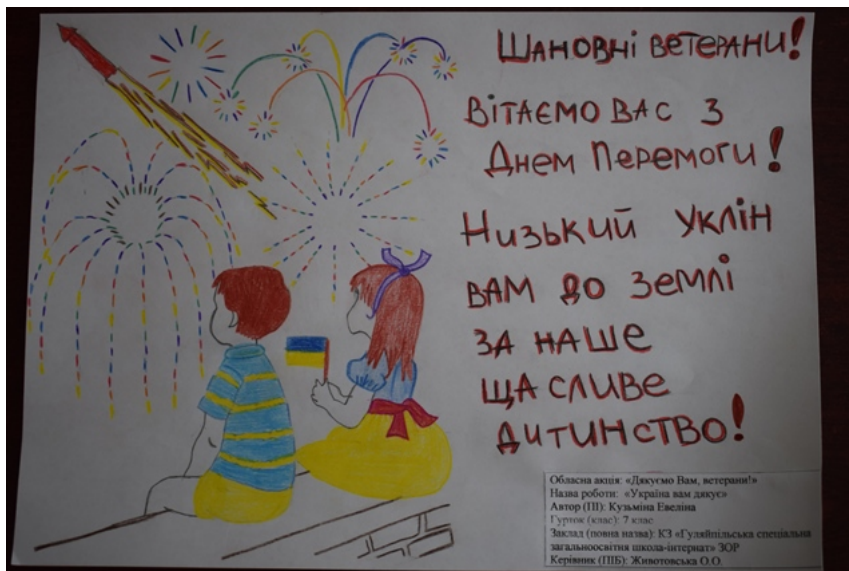 Шановні ветерани!
Вітаємо Вас з
Днем Перемоги!
Низький уклін
вам до землі
за наше
щасливе
дитинство!
Обласна акція: «Дякуємо Вам, ветерани!»
Назва роботи: «Україна вам дякує»
Автор (ПІ): Кузьміна Евеліна
Гурток (клас): 7 клас
Заклад (повна назва): КЗ «Гуляйпільська спеціальна
загальноосвітня школа-інтернат» ЗОР
Керівник (ПІБ): Животовська О.О.